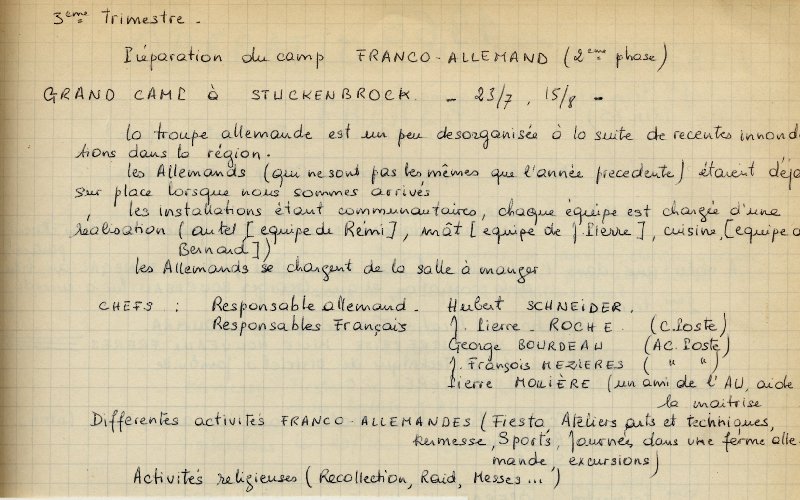 3eme Trimestre.
Préparation du camp FRANCO-ALLEMAND (2eme phase)
GRAND CAMP à STUCKENBROCK. - 23/7, 15/8 -
la troupe allemande est un peu desorganisée à la suite de recentes innonda
tions dans la région.
les Allemands (qui ne sont pas les mêmes que l'année precedente) étaient déjà
sur place lorsque nous sommes arrivés
les installations étant communautaires, chaque équipe est chargée d'une
réalisation (autel [equipe de Rémi], mât [equipe de J. Pierre], cuisine, [equipe de
Bernard])
les Allemands se chargent de la salle à manger
CHEFS : Responsable allemand. Herbert SCHNEIDER.
Responsables Français J. Pierre - ROCHE. (C. Poste)
George BOURDEAU (AC. Poste)
J. François MEZIERES ( " " )
Pierre MOLIÈRE (un ami de l'AU, aide
la maitrise
Differentes activités FRANCO-ALLEMANDES (Fiesta, Ateliers arts et techniques,
kermesse, Sports, Journée, dans une ferme alle-
mande, excursions)
Activités religieuses (Recollection, Raid, Messes...)